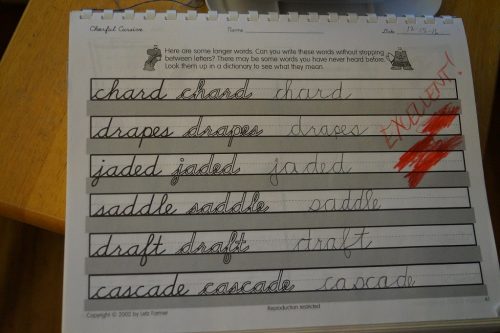 Cheerful Cursive Name Date 12-15-15
Here are some longer words. Can you write these words without stopping
between letters? There may be some words you have never heard before.
Look them up in a dictionary to see what they mean.
EXCELLENT!
chard chard chard
drapes drapes drapes
jaded jaded jaded
saddle saddle saddle
draft draft draft
cascade cascade cascade
Copyright © 2002 by Letz Farmer Reproduction restricted